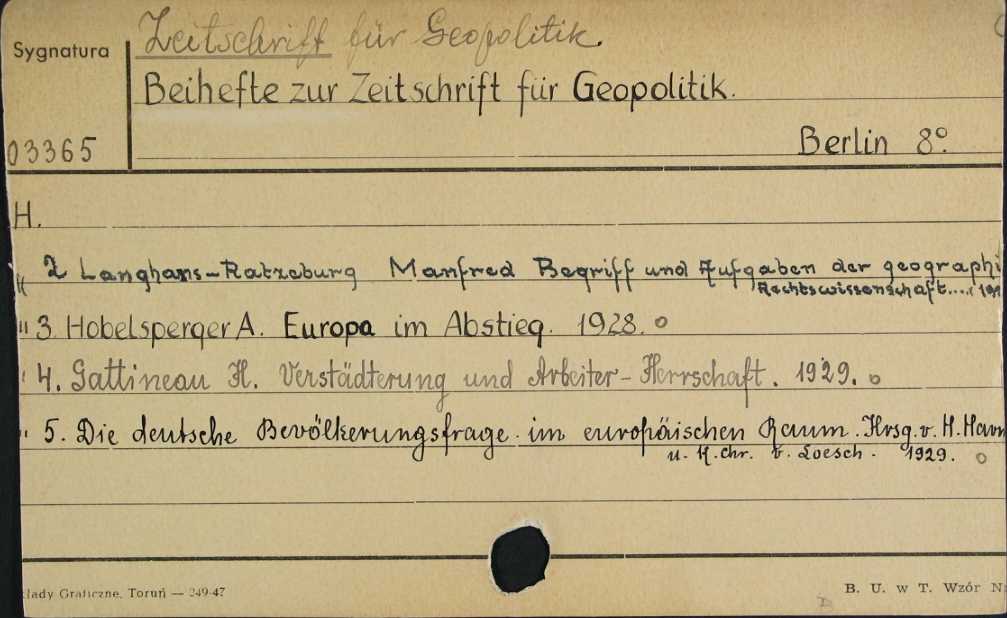 Zeitschrift für Geopolitik.
Sygnatura
Beihefte zur Zeitschrift für Geopolitik.
03365
Berlin 8°.
H.
" 2 Langhans-Ratzeburg Manfred Begriff und Aufgaben der geographi
Rechtswissenschaft....
" 3. Hobelsperger A. Europa im Abstieg. 1928. o
" 4. Gattineau H. Verstädterung und Arbeiter-Herrschaft. 1929. o
" 5. Die deutsche Bevölkerungsfrage im europäischen Raum. Hrsg. v. H. Harm
u. K. Chr. v. Loesch. 1929. o
łady Graficzne, Toruń — 249-47
B. U. w T. Wzór N